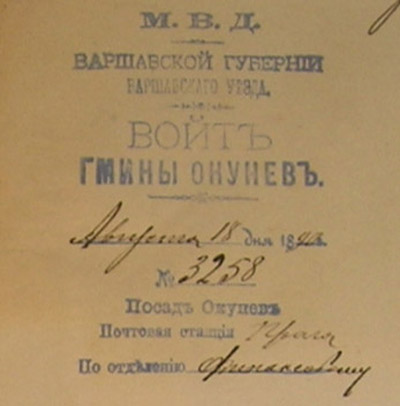 М. В. Д.
ВАРШАВСКОЙ ГУБЕРНІИ
ВАРШАВСКАГО УѢЗДА.
ВОЙТЪ
ГМИНЫ ОКУНЕВЪ.
Августа 18 дня 18
№ 3258
Посадъ Окуневъ
Почтовая станція Прага
По отдѣленію Финансовому